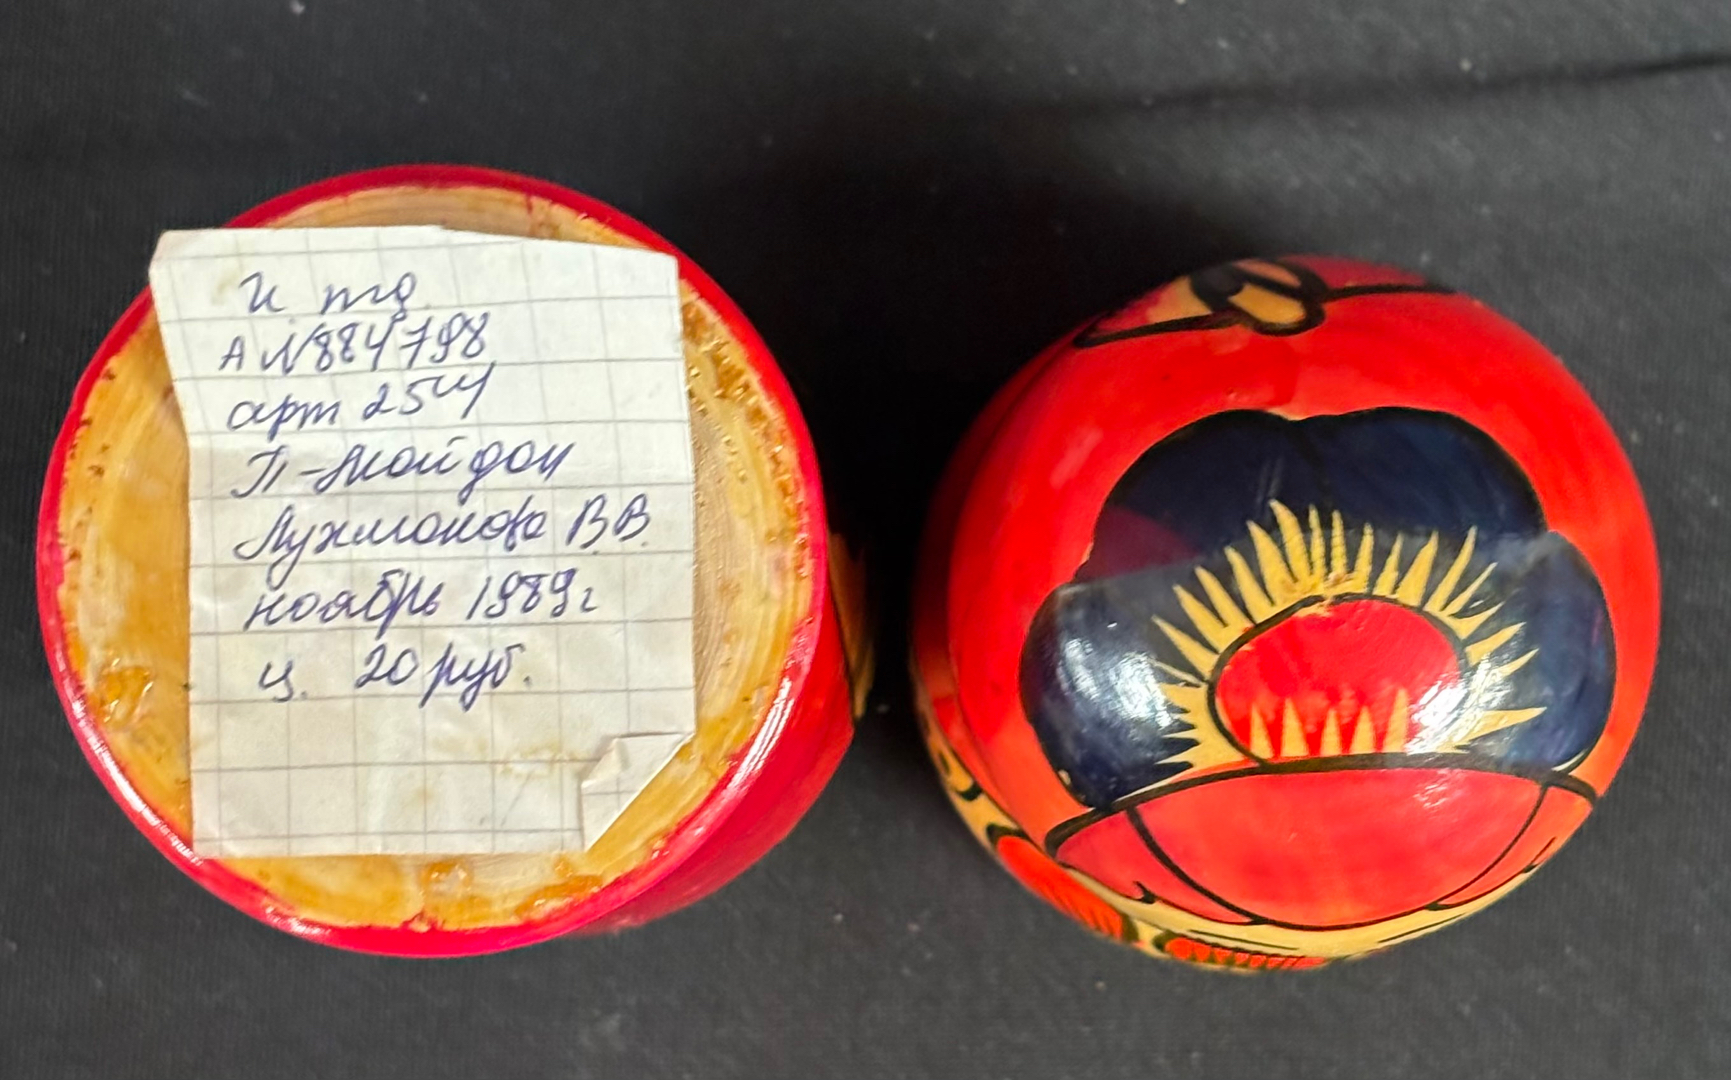 И. тд
А N884798
арт 254
П-Майдан
Лухманова В.В.
ноябрь 1989г
ц. 20 руб.